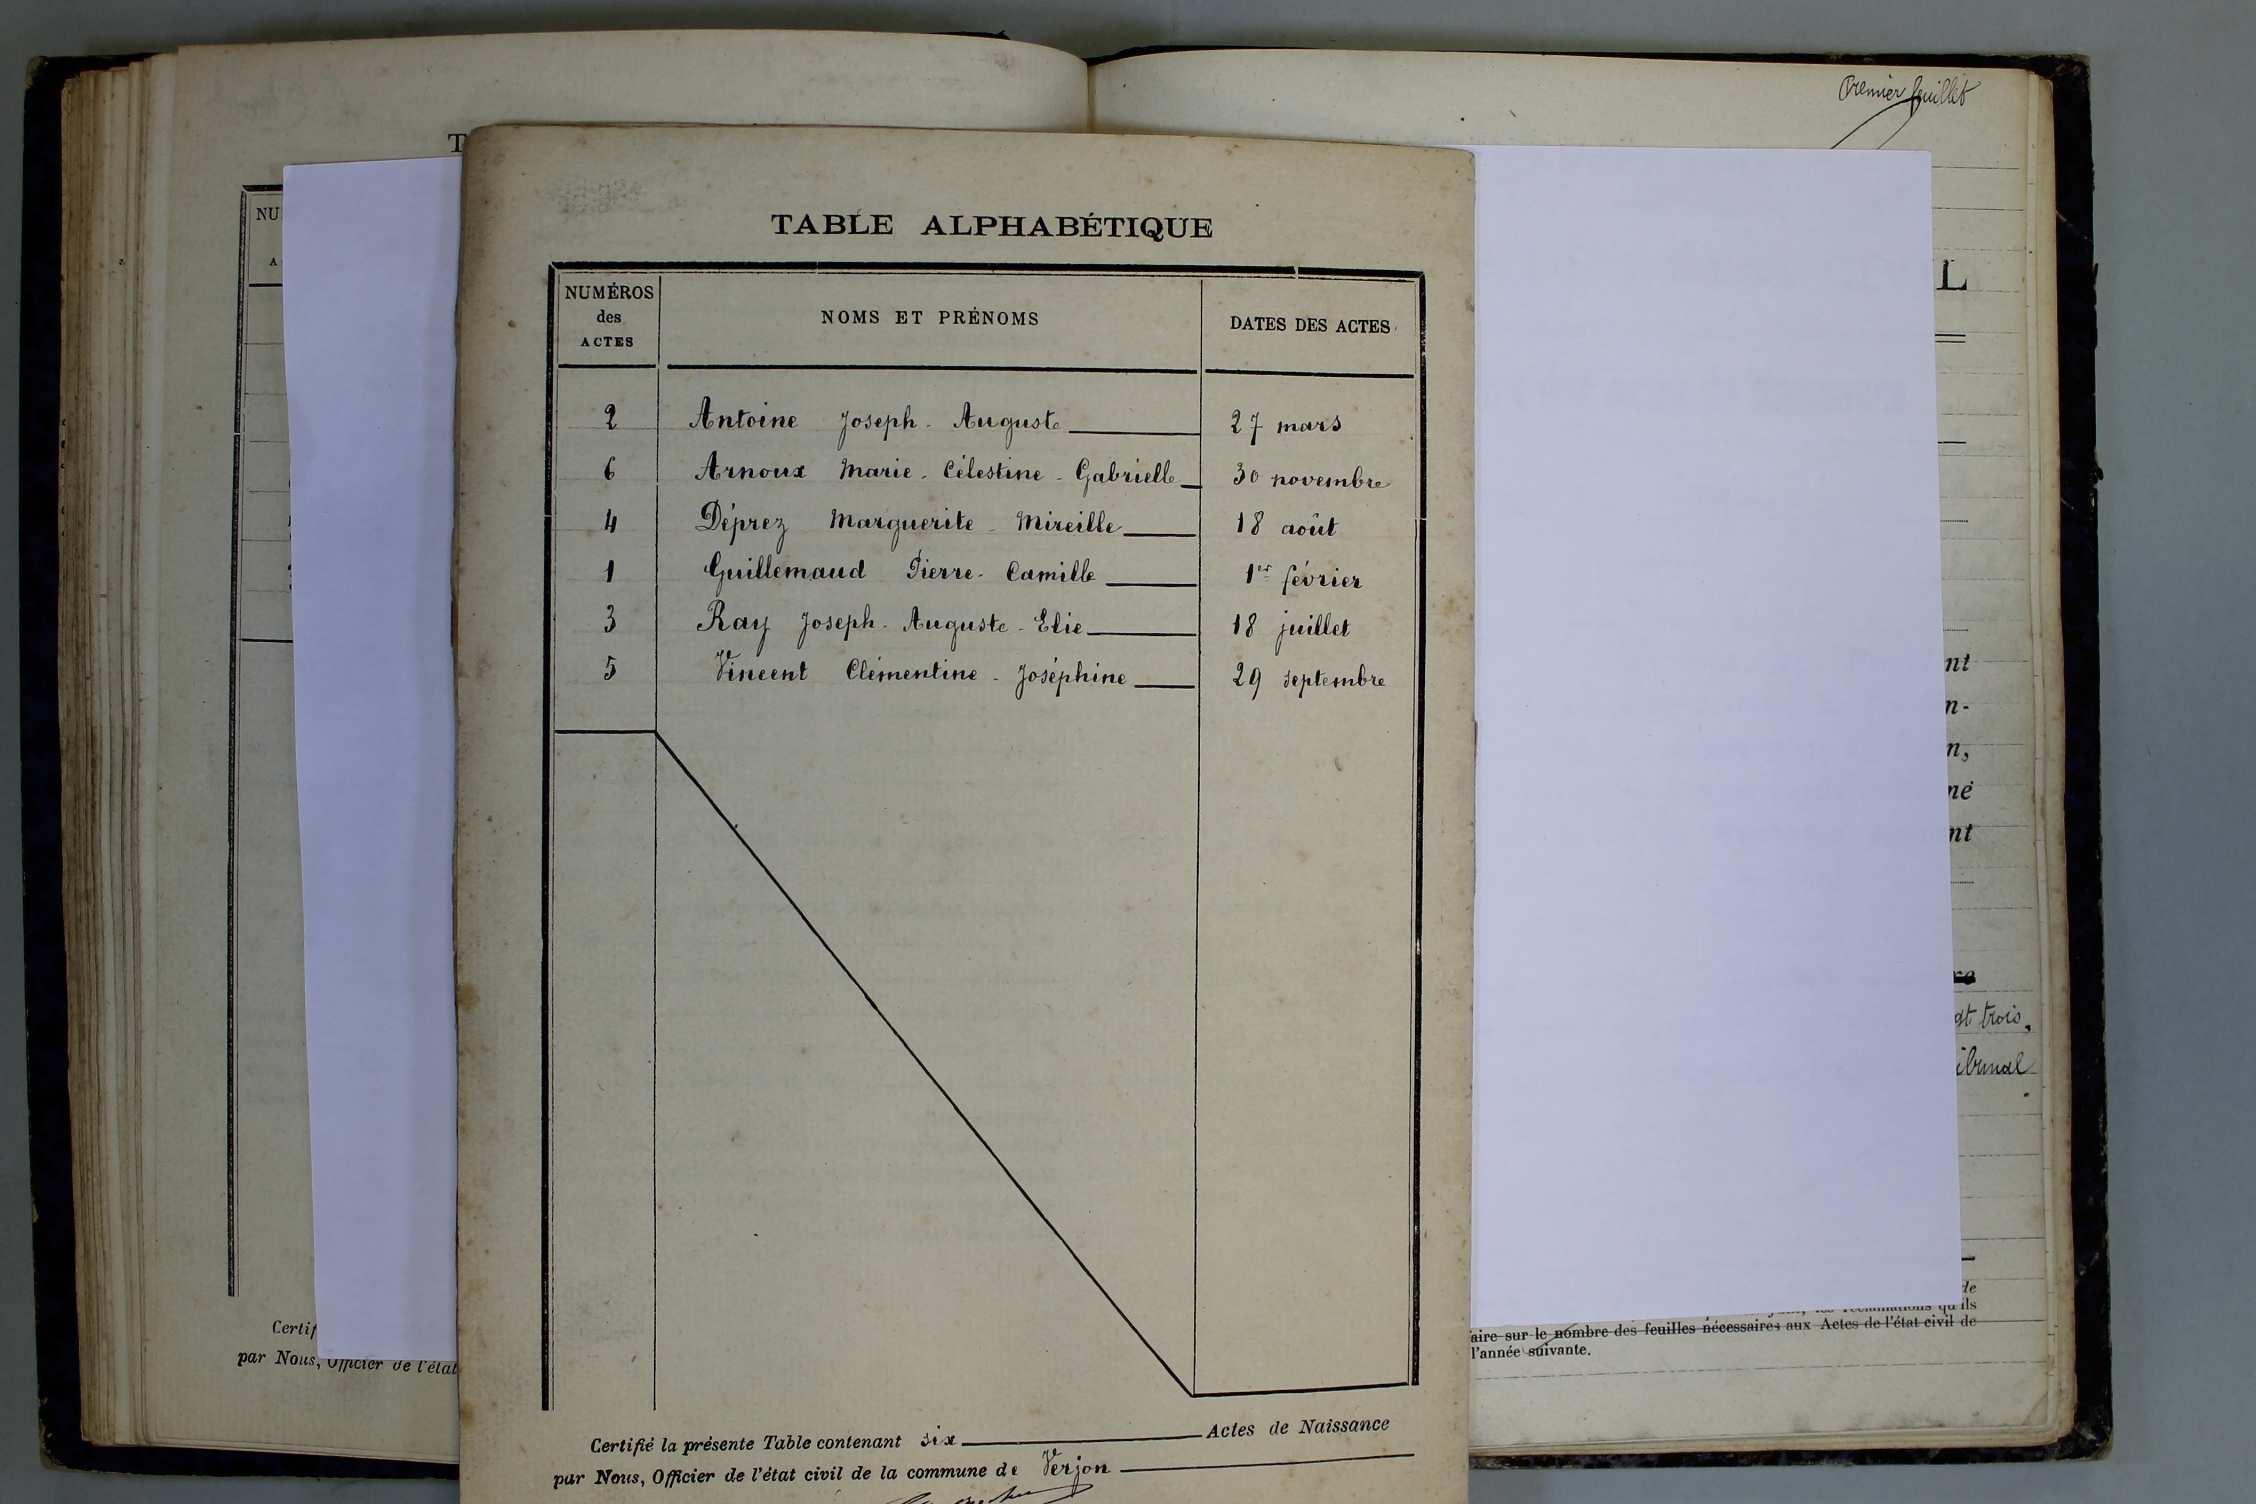 Premier feuillet
T
NU
A
TABLE ALPHABÉTIQUE
NUMÉROS des ACTES NOMS ET PRÉNOMS DATES DES ACTES
2 Antoine Joseph - Auguste 27 mars
6 Arnoux Marie - Célestine - Gabrielle 30 novembre
4 Déprez Marguerite - Mireille 18 août
1 Guillemaud Pierre - Camille 1er février
3 Ray Joseph - Auguste - Elie 18 juillet
5 Vincent Clémentine - Joséphine 29 septembre
Certifié la présente Table contenant six Actes de Naissance
par Nous, Officier de l'état civil de la commune de Verjon
Certif
par Nous, Officier de l'état
L
nt
n-
n,
né
nt
re
gt trois,
ibunal
de
les réclamations qu'ils
aire sur le nombre des feuilles nécessaires aux Actes de l'état civil de
l'année suivante.